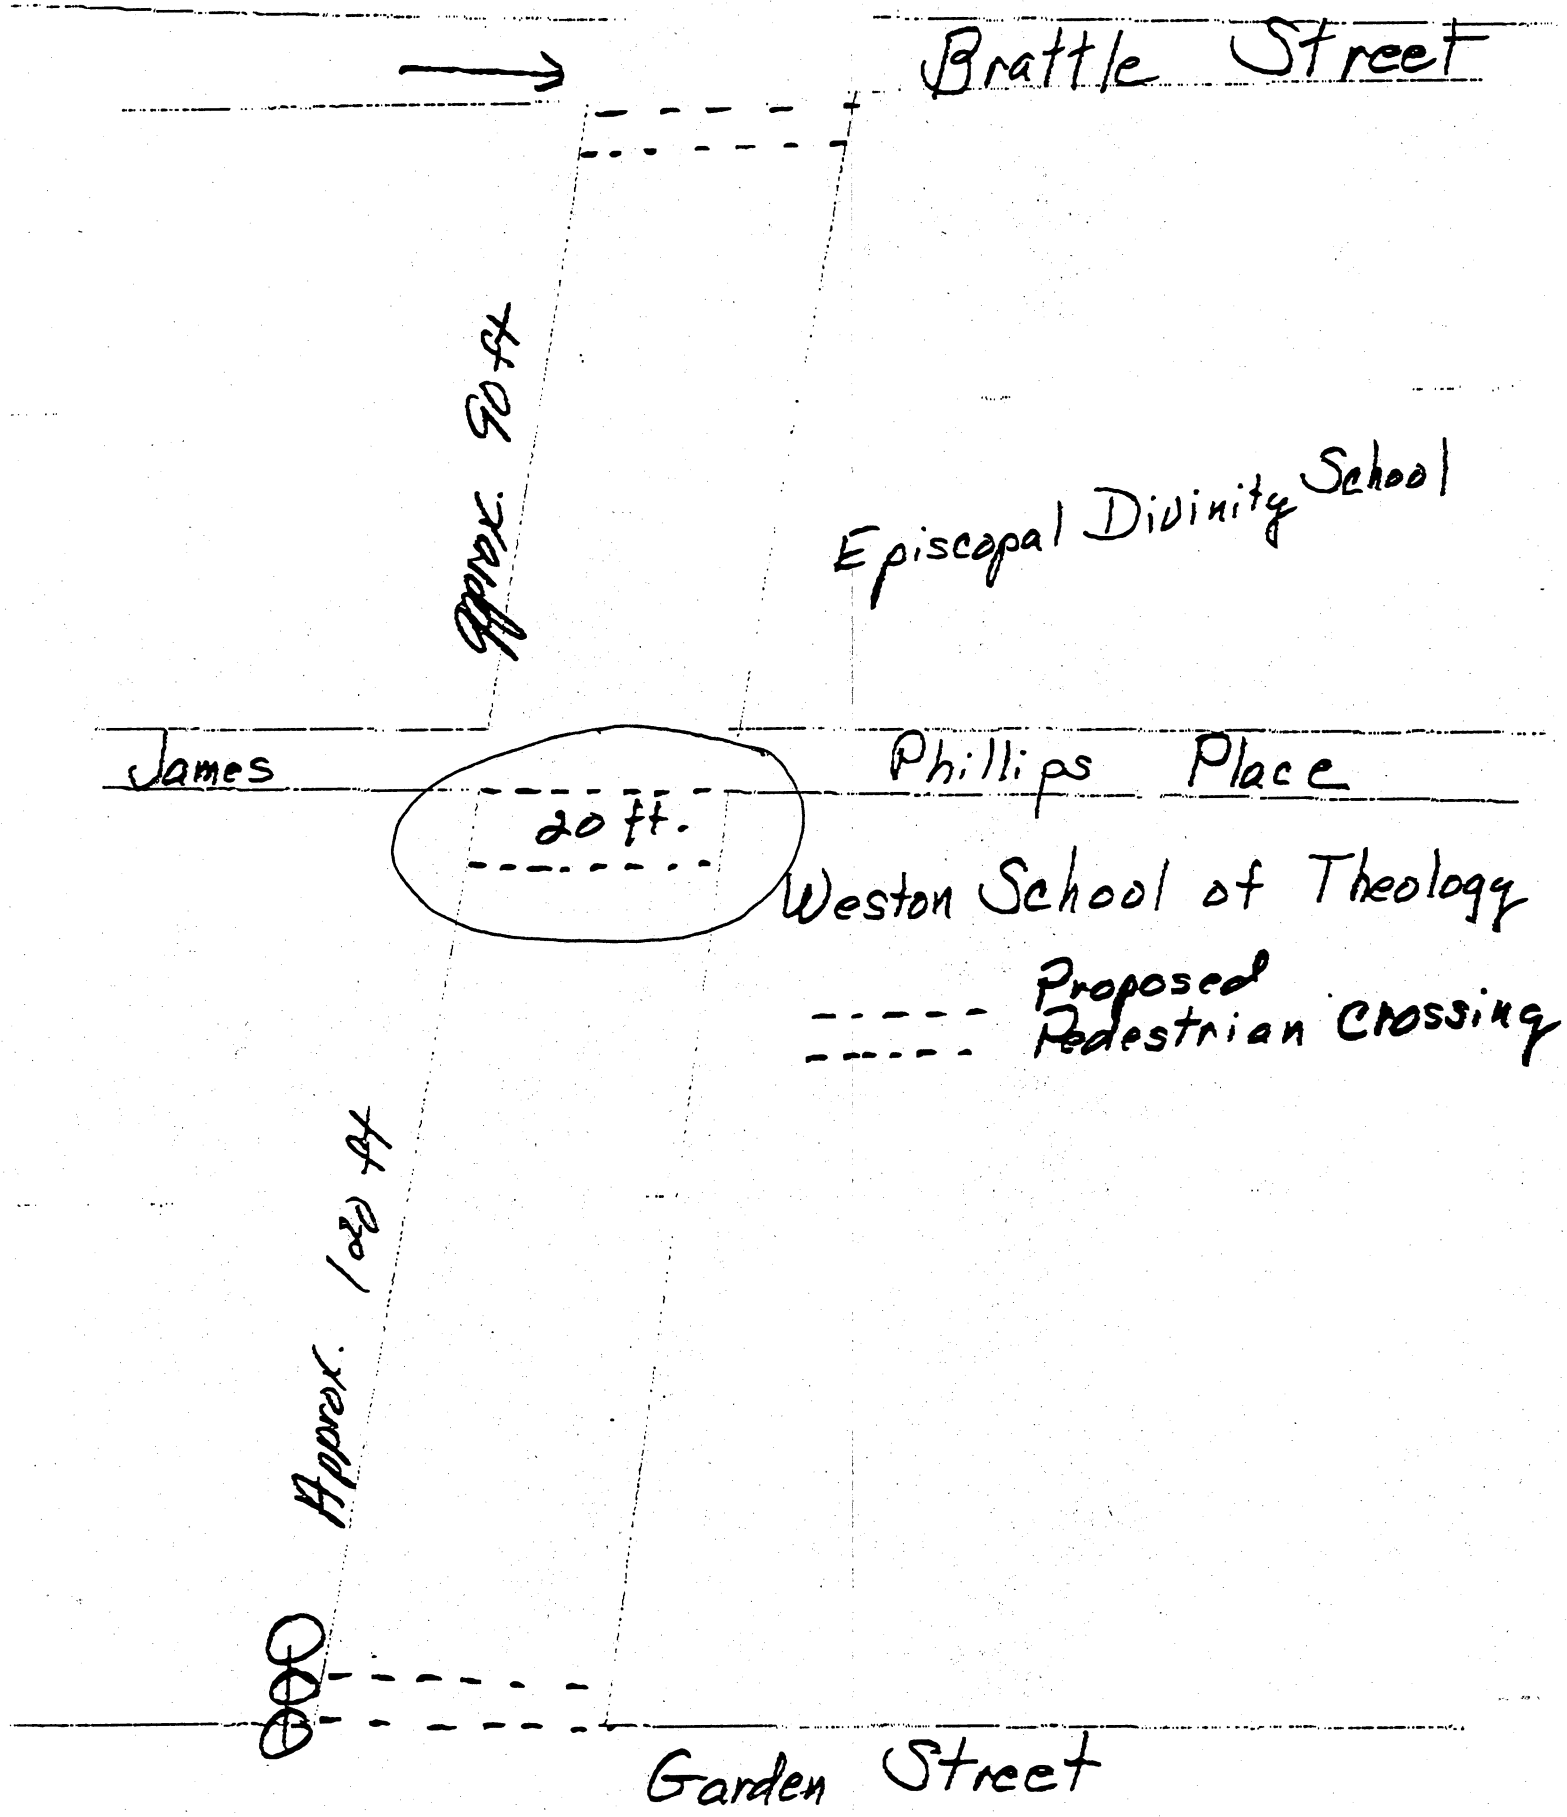 Brattle Street
approx. 90 ft
Episcopal Divinity School
James Phillips Place
20 ft.
Weston School of Theology
Proposed
Pedestrian Crossing
Approx. 120 ft
Garden Street